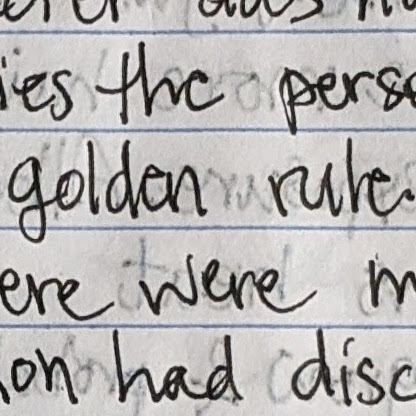 ies the pers
golden rule.
ere were m
on had disc